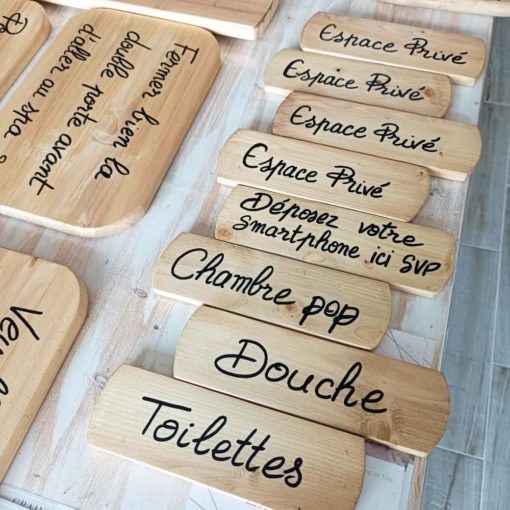 Espace Privé
Espace Privé
Espace Privé
Espace Privé
Déposez votre
Smartphone ici SVP
Chambre pop
Douche
Toilettes
Fermer bien la
double porte avant
d'aller au spa